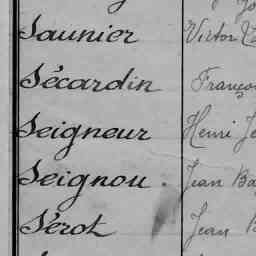 Saunier Victor
Sécardin Franço
Seigneur Henri Je
Seignou. Jean Ba
Sérot Jean